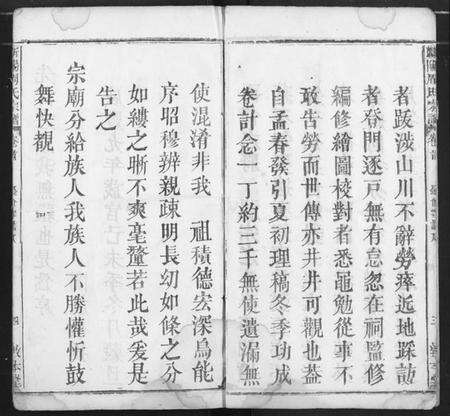 者跋涉山川不辭勞瘁近地踩訪
者登門逐戸無有怠忽在祠監修
編修繪圖校對者悉黽勉從事不
敢告勞而世傳亦井井可觀也葢
自孟春發引夏初理稿冬季功成
卷計念一丁約三千無使遺漏無
使混淆非我 祖積德宏深烏能
序昭穆辨親疎明長幼如條之分
如縷之晰不爽毫釐若此哉爰是
告之
宗廟分給族人我族人不勝懽忻鼓
舞快觀